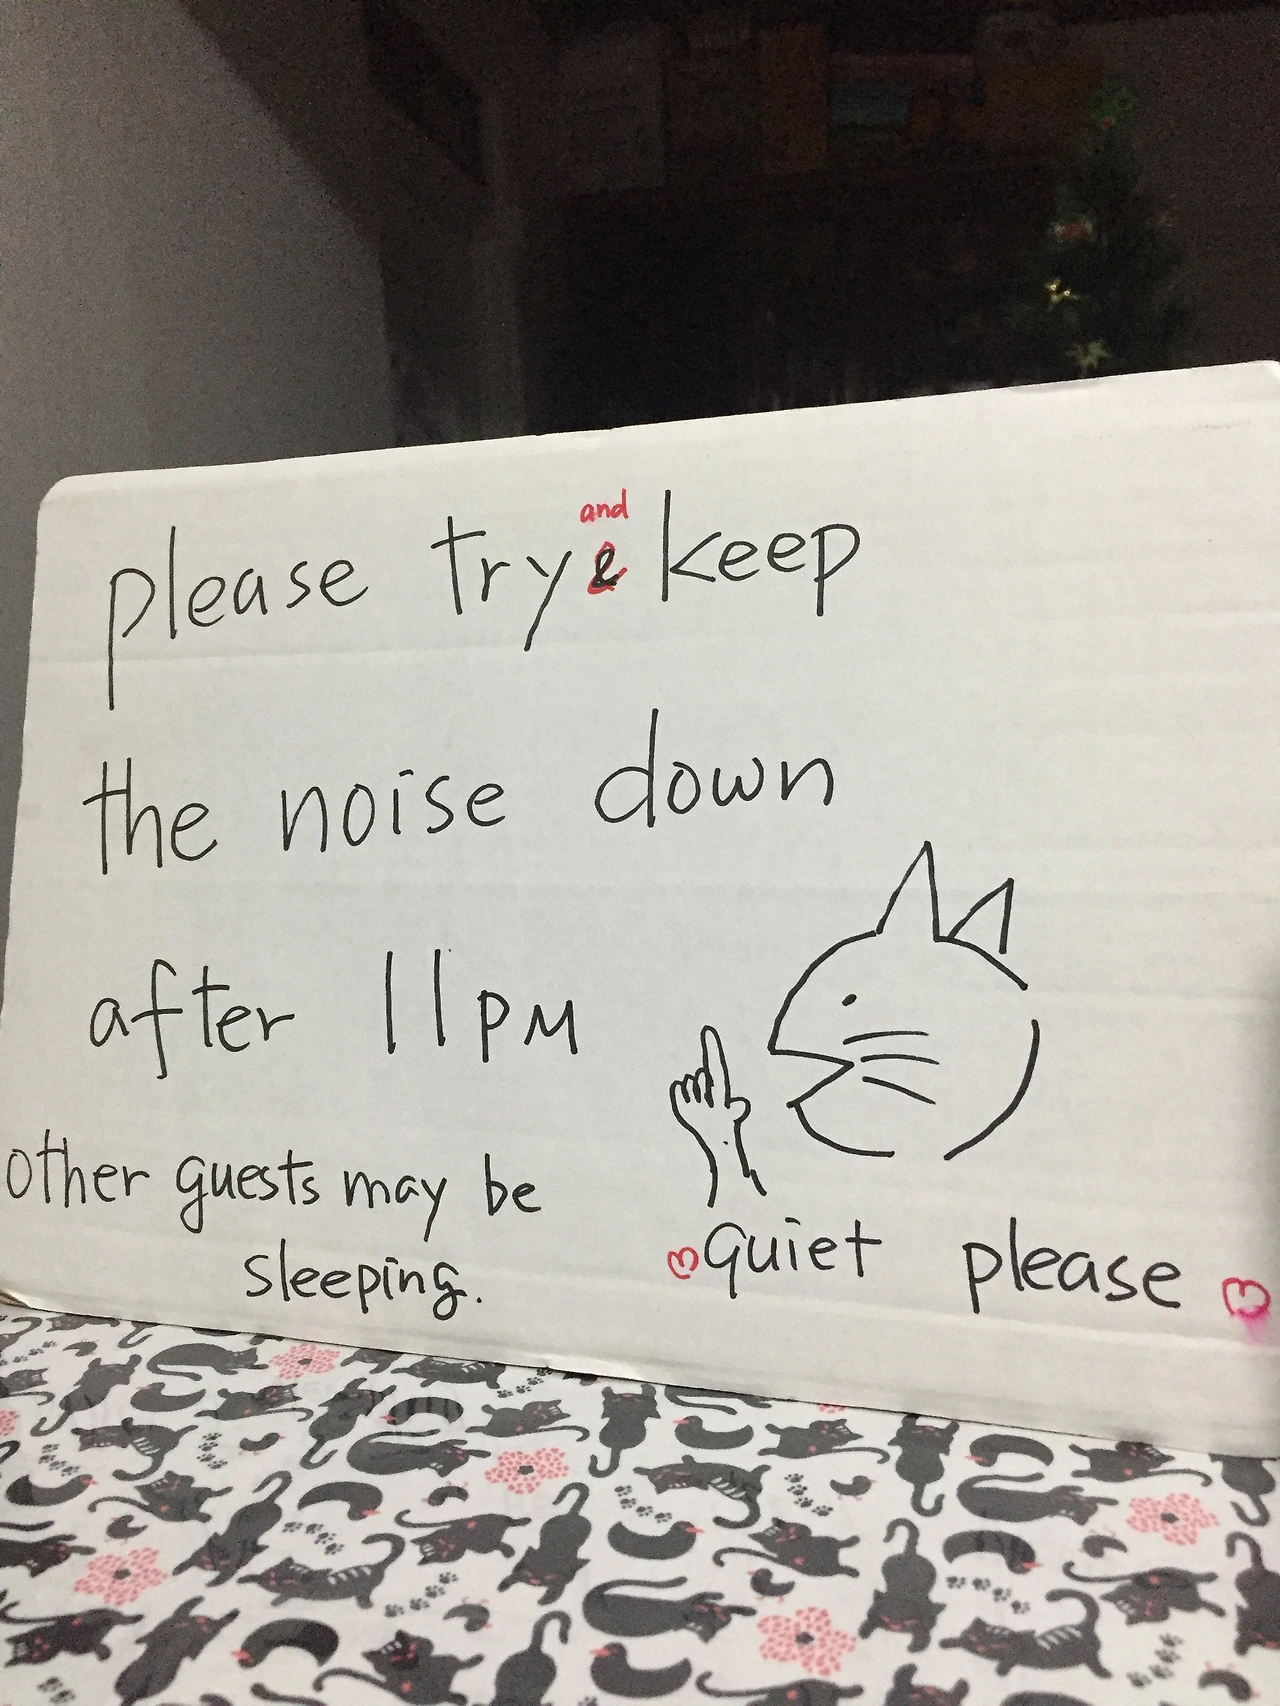 and
please try & keep
the noise down
after 11PM
other guests may be
sleeping.
quiet please